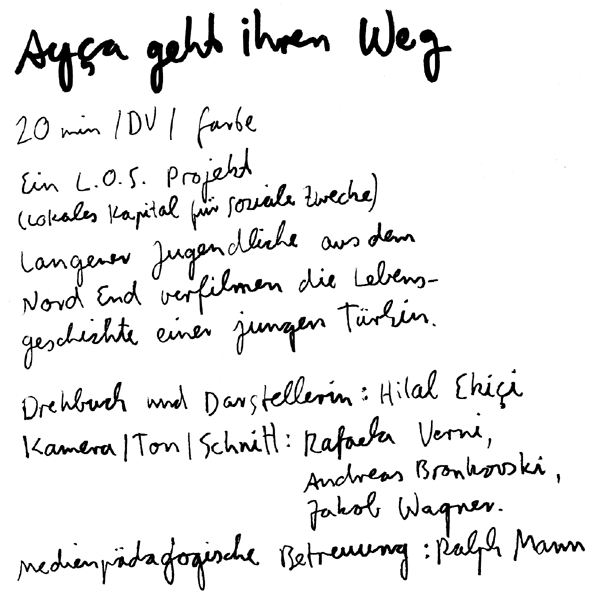 Ayça geht ihren Weg
20 min / DV / farbe
Ein L.O.S. Projekt
(Lokales Kapital für soziale Zwecke)
Langener Jugendliche aus dem
Nord End verfilmen die Lebens-
geschichte einer jungen Türkin.
Drehbuch und Darstellerin: Hilal Ekiçi
Kamera / Ton / Schnitt: Rafaela Verni,
Andreas Bronkovski,
Jakob Wagner.
Medienpädagogische Betreuung: Ralph Mann